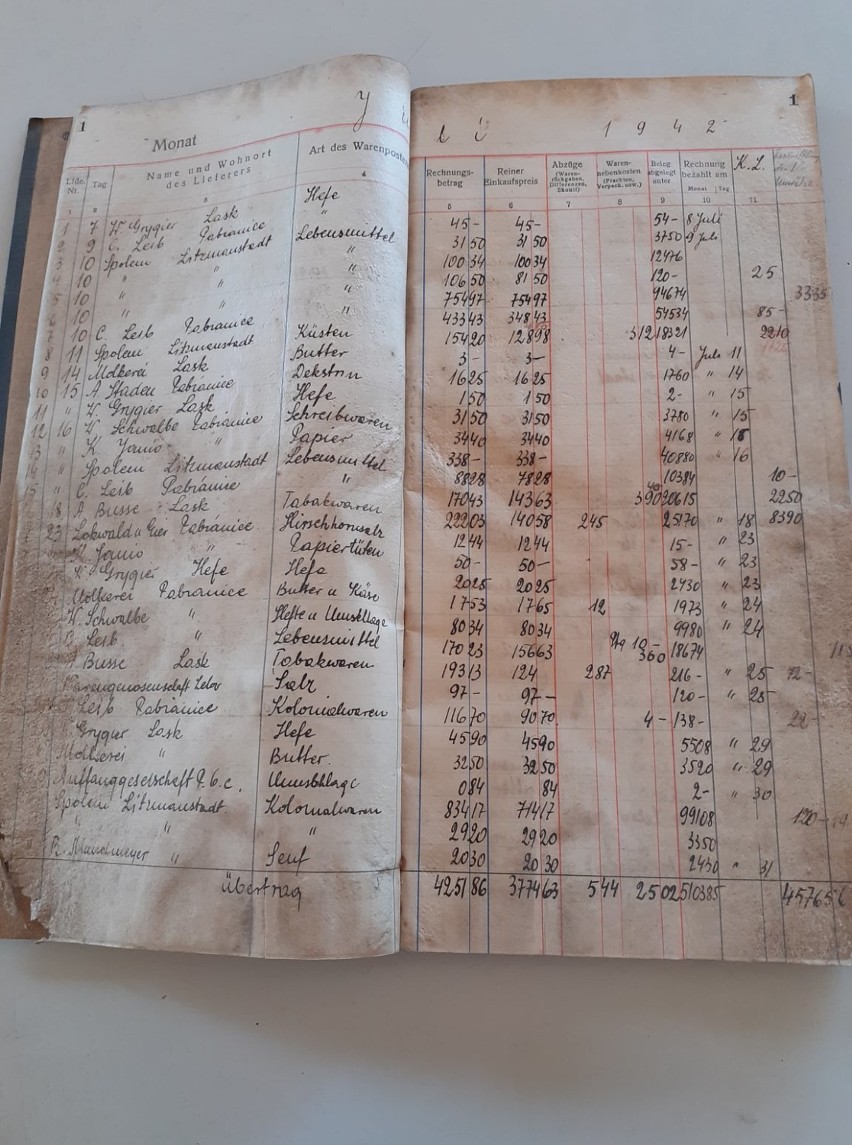 1 Monat Juli 1942 1
Lfde. Nr. Tag Name und Wohnort des Lieferers Art des Warenpostens Rechnungsbetrag Reiner Einkaufspreis Abzüge (Warenrückgaben, Differenzen, Skonti) Warennebenkosten (Frachten, Verpack. usw.) Beleg abgelegt unter Rechnung bezahlt am Monat Tag K. L.
5 6 7 8 9 10 11
1 7 W. Grygier Lask Hefe 45- 45- 54- 8 Juli
2 9 C. Leib Pabianice " 31 50 31 50 3750 9 Juli
3 10 Spolem Litzmanstadt Lebensmittel 100 34 100 34 12476
4 10 " " " 106 50 81 50 120- 25
5 10 " " " 754 97 754 97 94674 3335
6 10 " " " 433 43 348 43 54534 85-
7 10 C. Leib Pabianice " 154 20 128 98 312 18321 2210
8 11 Spolem Litzmanstadt Küsten 3- 3- 4- Juli 11
9 14 Molkerei Lask Butter 16 25 16 25 1760 " 14
10 15 A. Staden Pabianice Dekstrin 1 50 1 50 2- " 15
11 " W. Grygier Lask Hefe 31 50 31 50 3780 " 15
12 16 W. Schwalbe Pabianice Schreibwaren 34 40 34 40 4168 " 16
13 " K. Janio " Papier 338- 338- 40880 " 16
14 " Spolem Litzmanstadt Lebensmittel 88 28 78 28 10384 10-
15 " C. Leib Pabianice " 170 43 143 63 390 20615 2250
18 A. Busse Lask Tabakwaren 222 03 140 58 245 25170 " 18 8390
23 Lokwald u Gier Pabianice Hirschhornsalz 12 44 12 44 15- " 23
K. Janio " Papiertüten 50- 50- 58- " 23
W. Grygier Hefe Hefe 20 25 20 25 2430 " 23
Molkerei Pabianice Butter u Käse 17 53 17 65 12 1973 " 24
W. Schwalbe " Hefte u Umschläge 80 34 80 34 9980 " 24
C. Leib " Lebensmittel 170 23 156 63 10- 360 18674
A. Busse Lask Tabakwaren 193 13 124 287 216- " 25 72-
Salz 97- 97- 120- " 25
Leib Pabianice Kolonialwaren 116 70 90 70 4- 138- 22-
Grygier Lask Hefe 45 90 45 90 5508 " 29
Molkerei " Butter 32 50 32 50 3520 " 29
Auffanggesellschaft Umschläge 0 84 84 2- " 30
Spolem Litzmanstadt Kolonialwaren 834 17 714 17 99108 120-
" " " 29 20 29 20 3350
" Senf 20 30 20 30 2430 " 31
Übertrag 4251 86 3774 63 544 2502 510385 45765